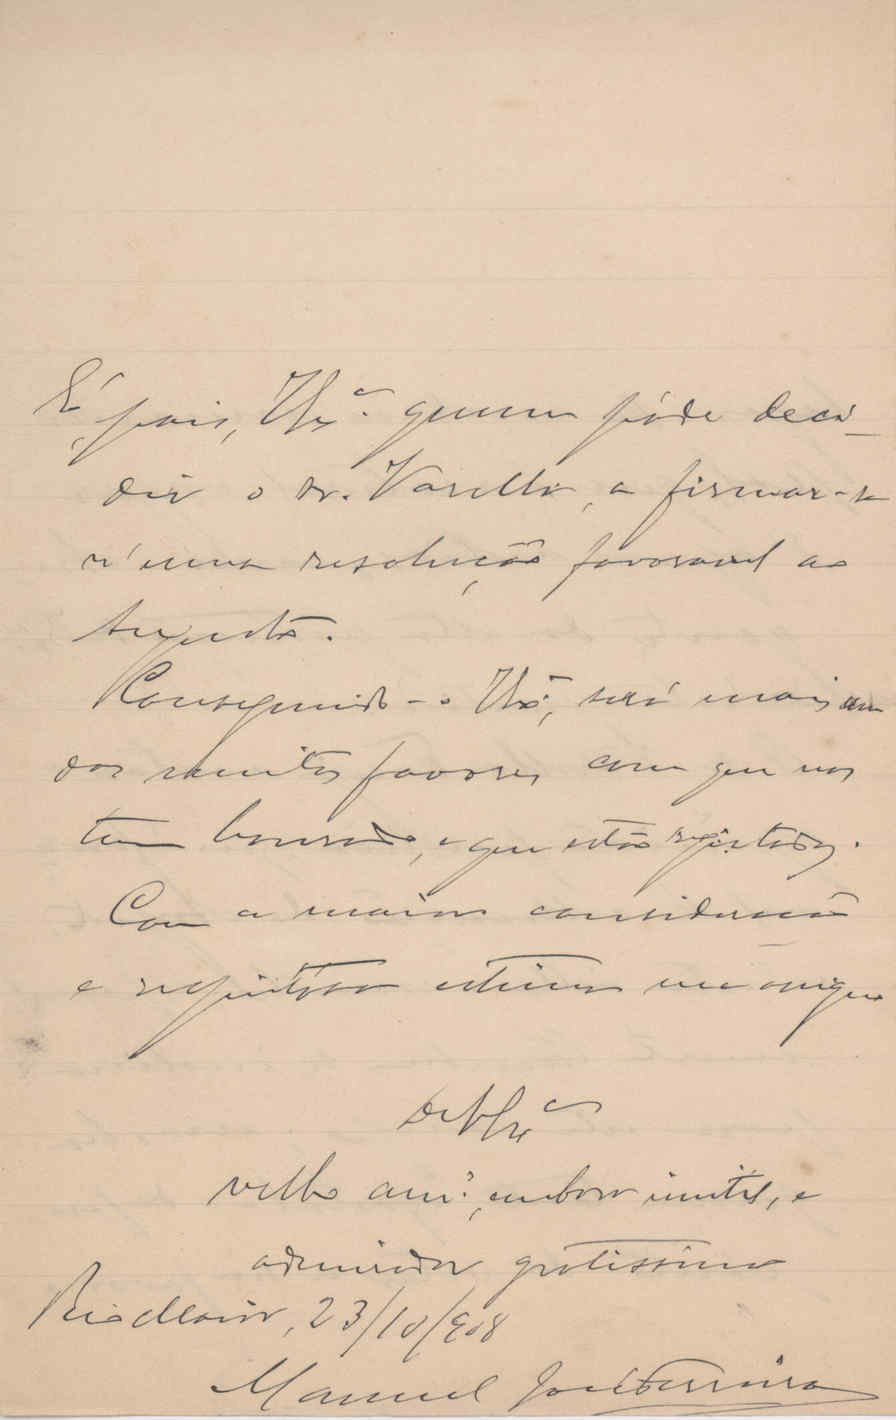 É, pois, V. Ex.ª quem póde deci-
dir o dr. Varella, a firmar-se
n'uma resolução favoravel ao
Conseguindo-o V. Exª, será mais um
dos muitos favores com que nos
tem honrado, e que estão registados.
Com a maior consideração
e respeitosa estima me
De V. Exª
velho am.º, embora inutil, e
admirador gratissimo
Rio Maior, 23/10/908
Manuel José Ferreira